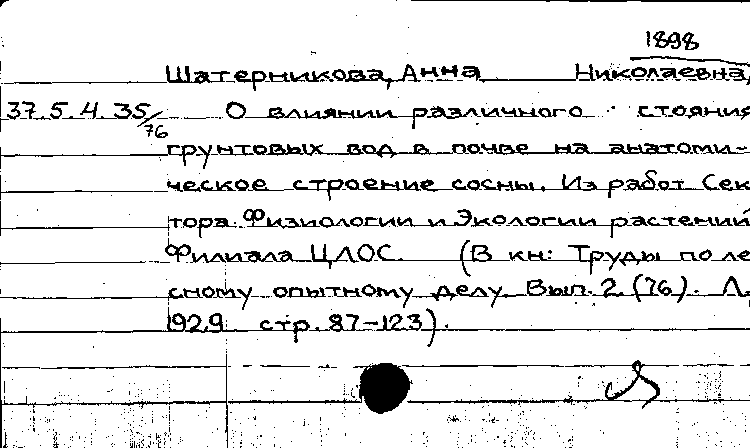 1898
Шатерникова, Анна Николаевна,
37.5.4.35/76 О влиянии различного стояния
грунтовых вод в почве на анатоми-
ческое строение сосны. Из работ Сек
тора Физиологии и Экологии растений
Филиала ЦЛОС. (В кн: Труды по ле
сному опытному делу. Вып. 2 (76). Л.
1929 стр. 87-123).